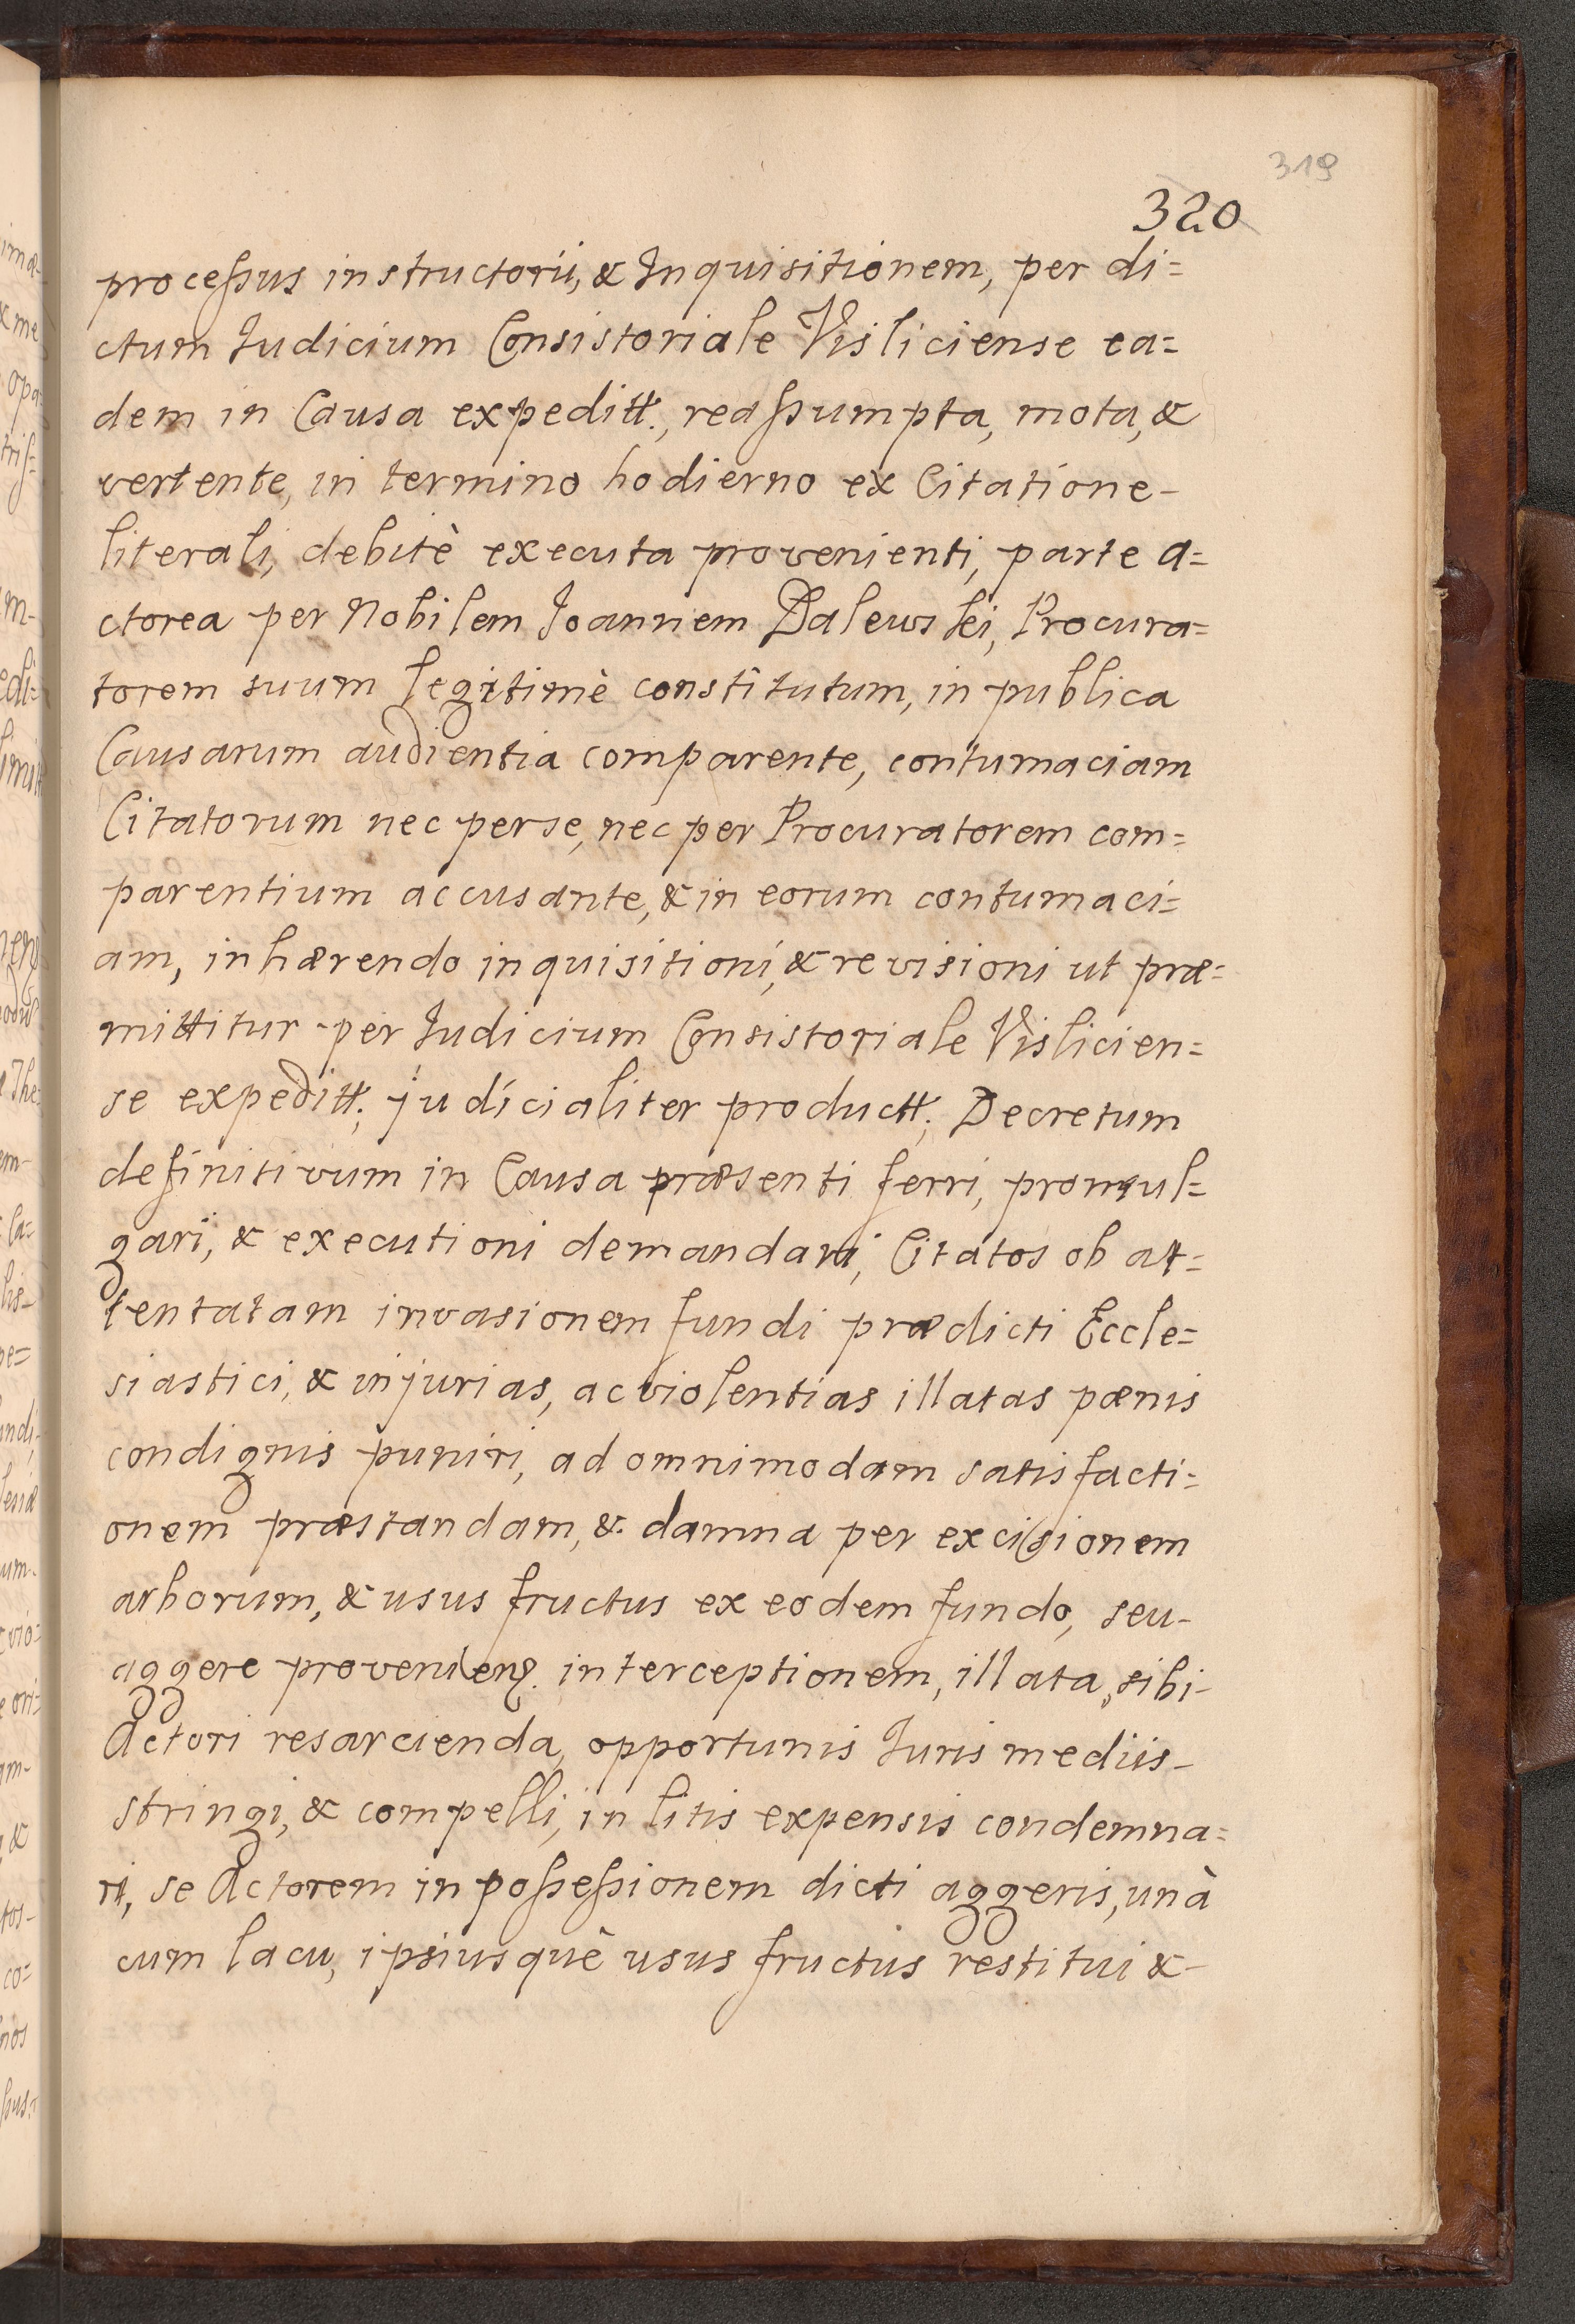 319
320
processus instructorii, & Inquisitionem, per di=
ctum Iudicium Consistoriale Visliciense ea=
dem in Causa expeditt., reassumpta, mota, &
vertente, in termino hodierno ex Citatione-
literali, debitè executa provenienti, parte a=
ctorea per Nobilem Joannem Dalewski, Procura=
torem suum legitimè constitutum, in publica
Causarum audientia comparente, contumaciam
Citatorum nec per se, nec per Procuratorem com=
parentium accusante, & in eorum contumaci=
am, inhærendo inquisitioni, & revisioni ut præ=
mittitur per Iudicium Consistoriale Vislicien=
se expeditt. judicialiter productt. Decretum
definitivum in Causa præsenti ferri, promul=
gari, & executioni demandari, Citatos ob at=
tentatam invasionem fundi prædicti Eccle=
siastici, & injurias, ac violentias illatas pænis
condignis puniri, ad omnimodam satisfacti=
onem præstandam, & damna per excisionem
arborum, & usus fructus ex eodem fundo, seu-
aggere provenien. interceptionem, illata, sibi-
Actori resarcienda, opportunis Iuris mediis-
stringi, & compelli, in litis expensis condemna=
ri, se Actorem in possessionem dicti aggeris, unà
cum lacu, ipsiusquè usus fructus restitui &-